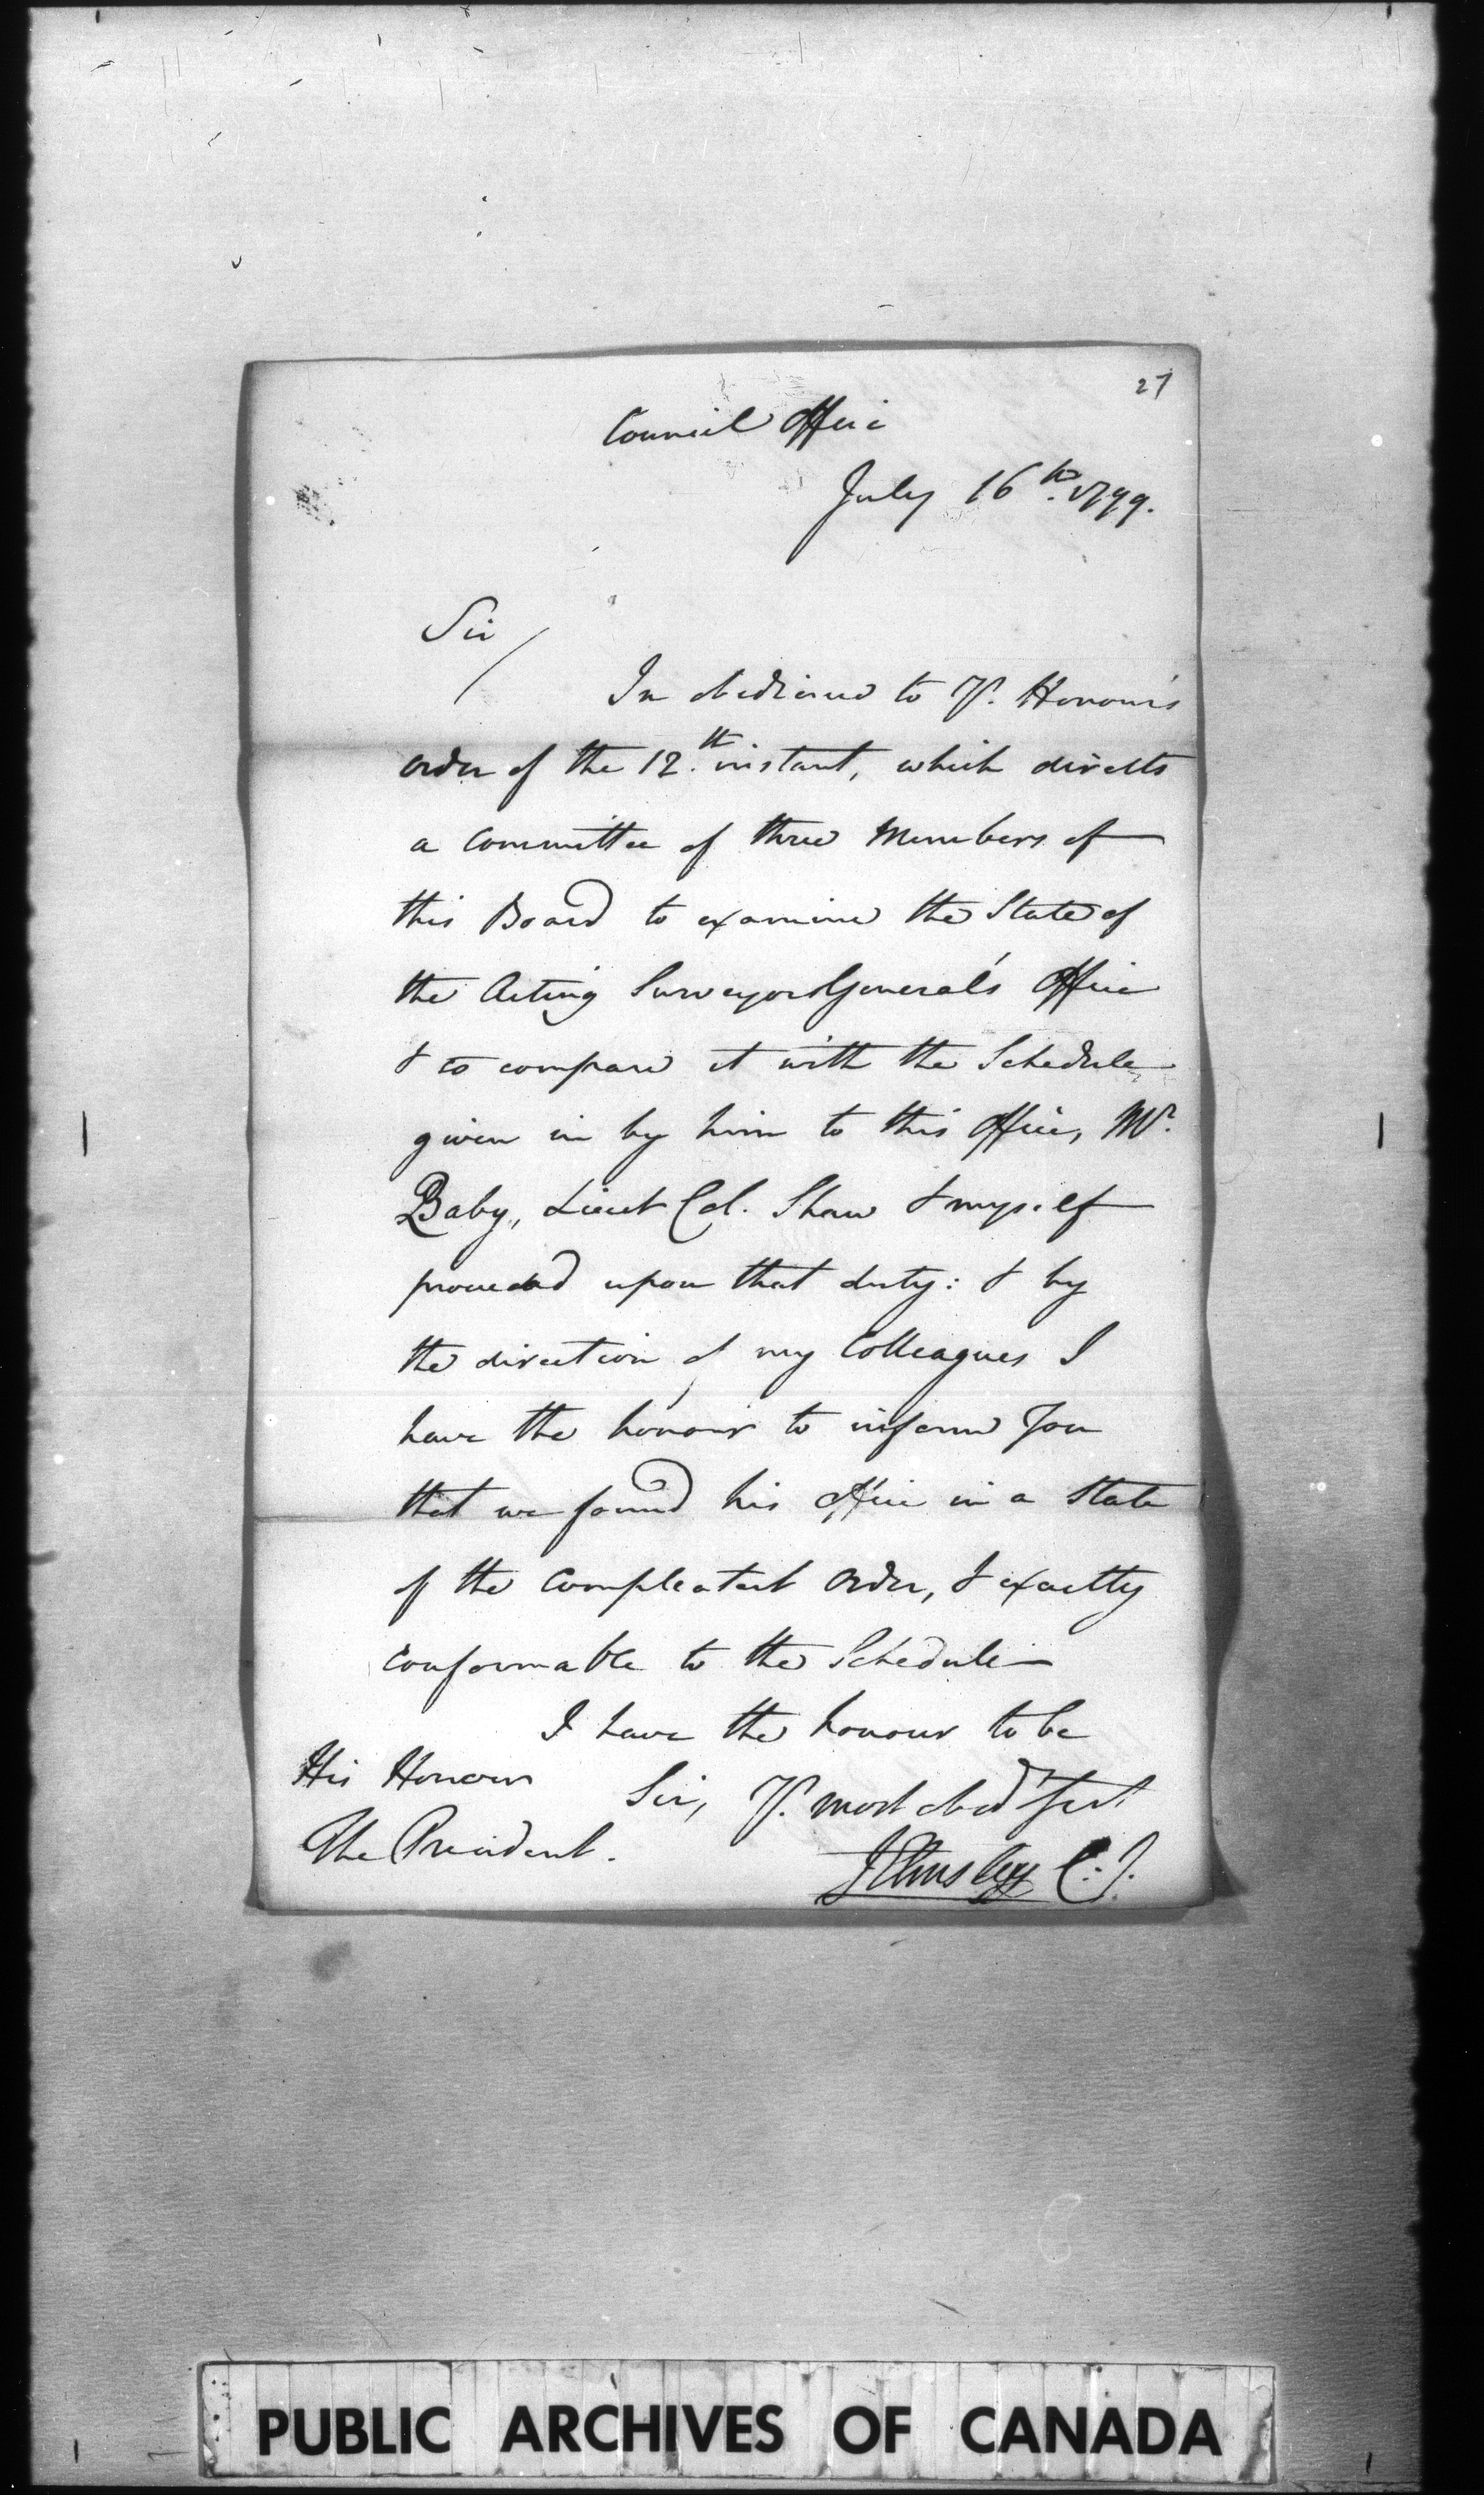 27
Council Office
July 16th. 1799.
Sir /
In obedience to Yr. Honour's
order of the 12.th instant, which directs
a Committee of three Members of
this Board to examine the State of
the Acting Surveyor General's Office
& to compare it with the Schedule
given in by him to this Office, Mr.
Baby, Lieut Col. Shaw & myself
proceeded upon that duty: & by
the direction of my Colleagues I
have the honour to inform You
that we found his Office in a State
of the Compleatest Order, & exactly
conformable to the Schedule—
I have the honour to be
His Honour
Sir, Yr. most obed Servt
The President.
J Elmsley C.J.
PUBLIC ARCHIVES OF CANADA